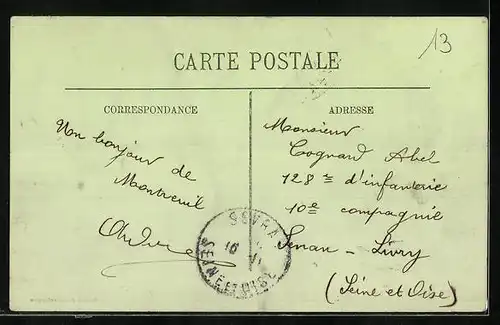 13
CARTE POSTALE
CORRESPONDANCE
ADRESSE
Un bonjour de
Montreuil
André
Monsieur
Cognard Abel
128me d'infanterie
10e compagnie
Senan-Livry
(Seine et Oise)
SEVRA
10
SEINE ET OISE